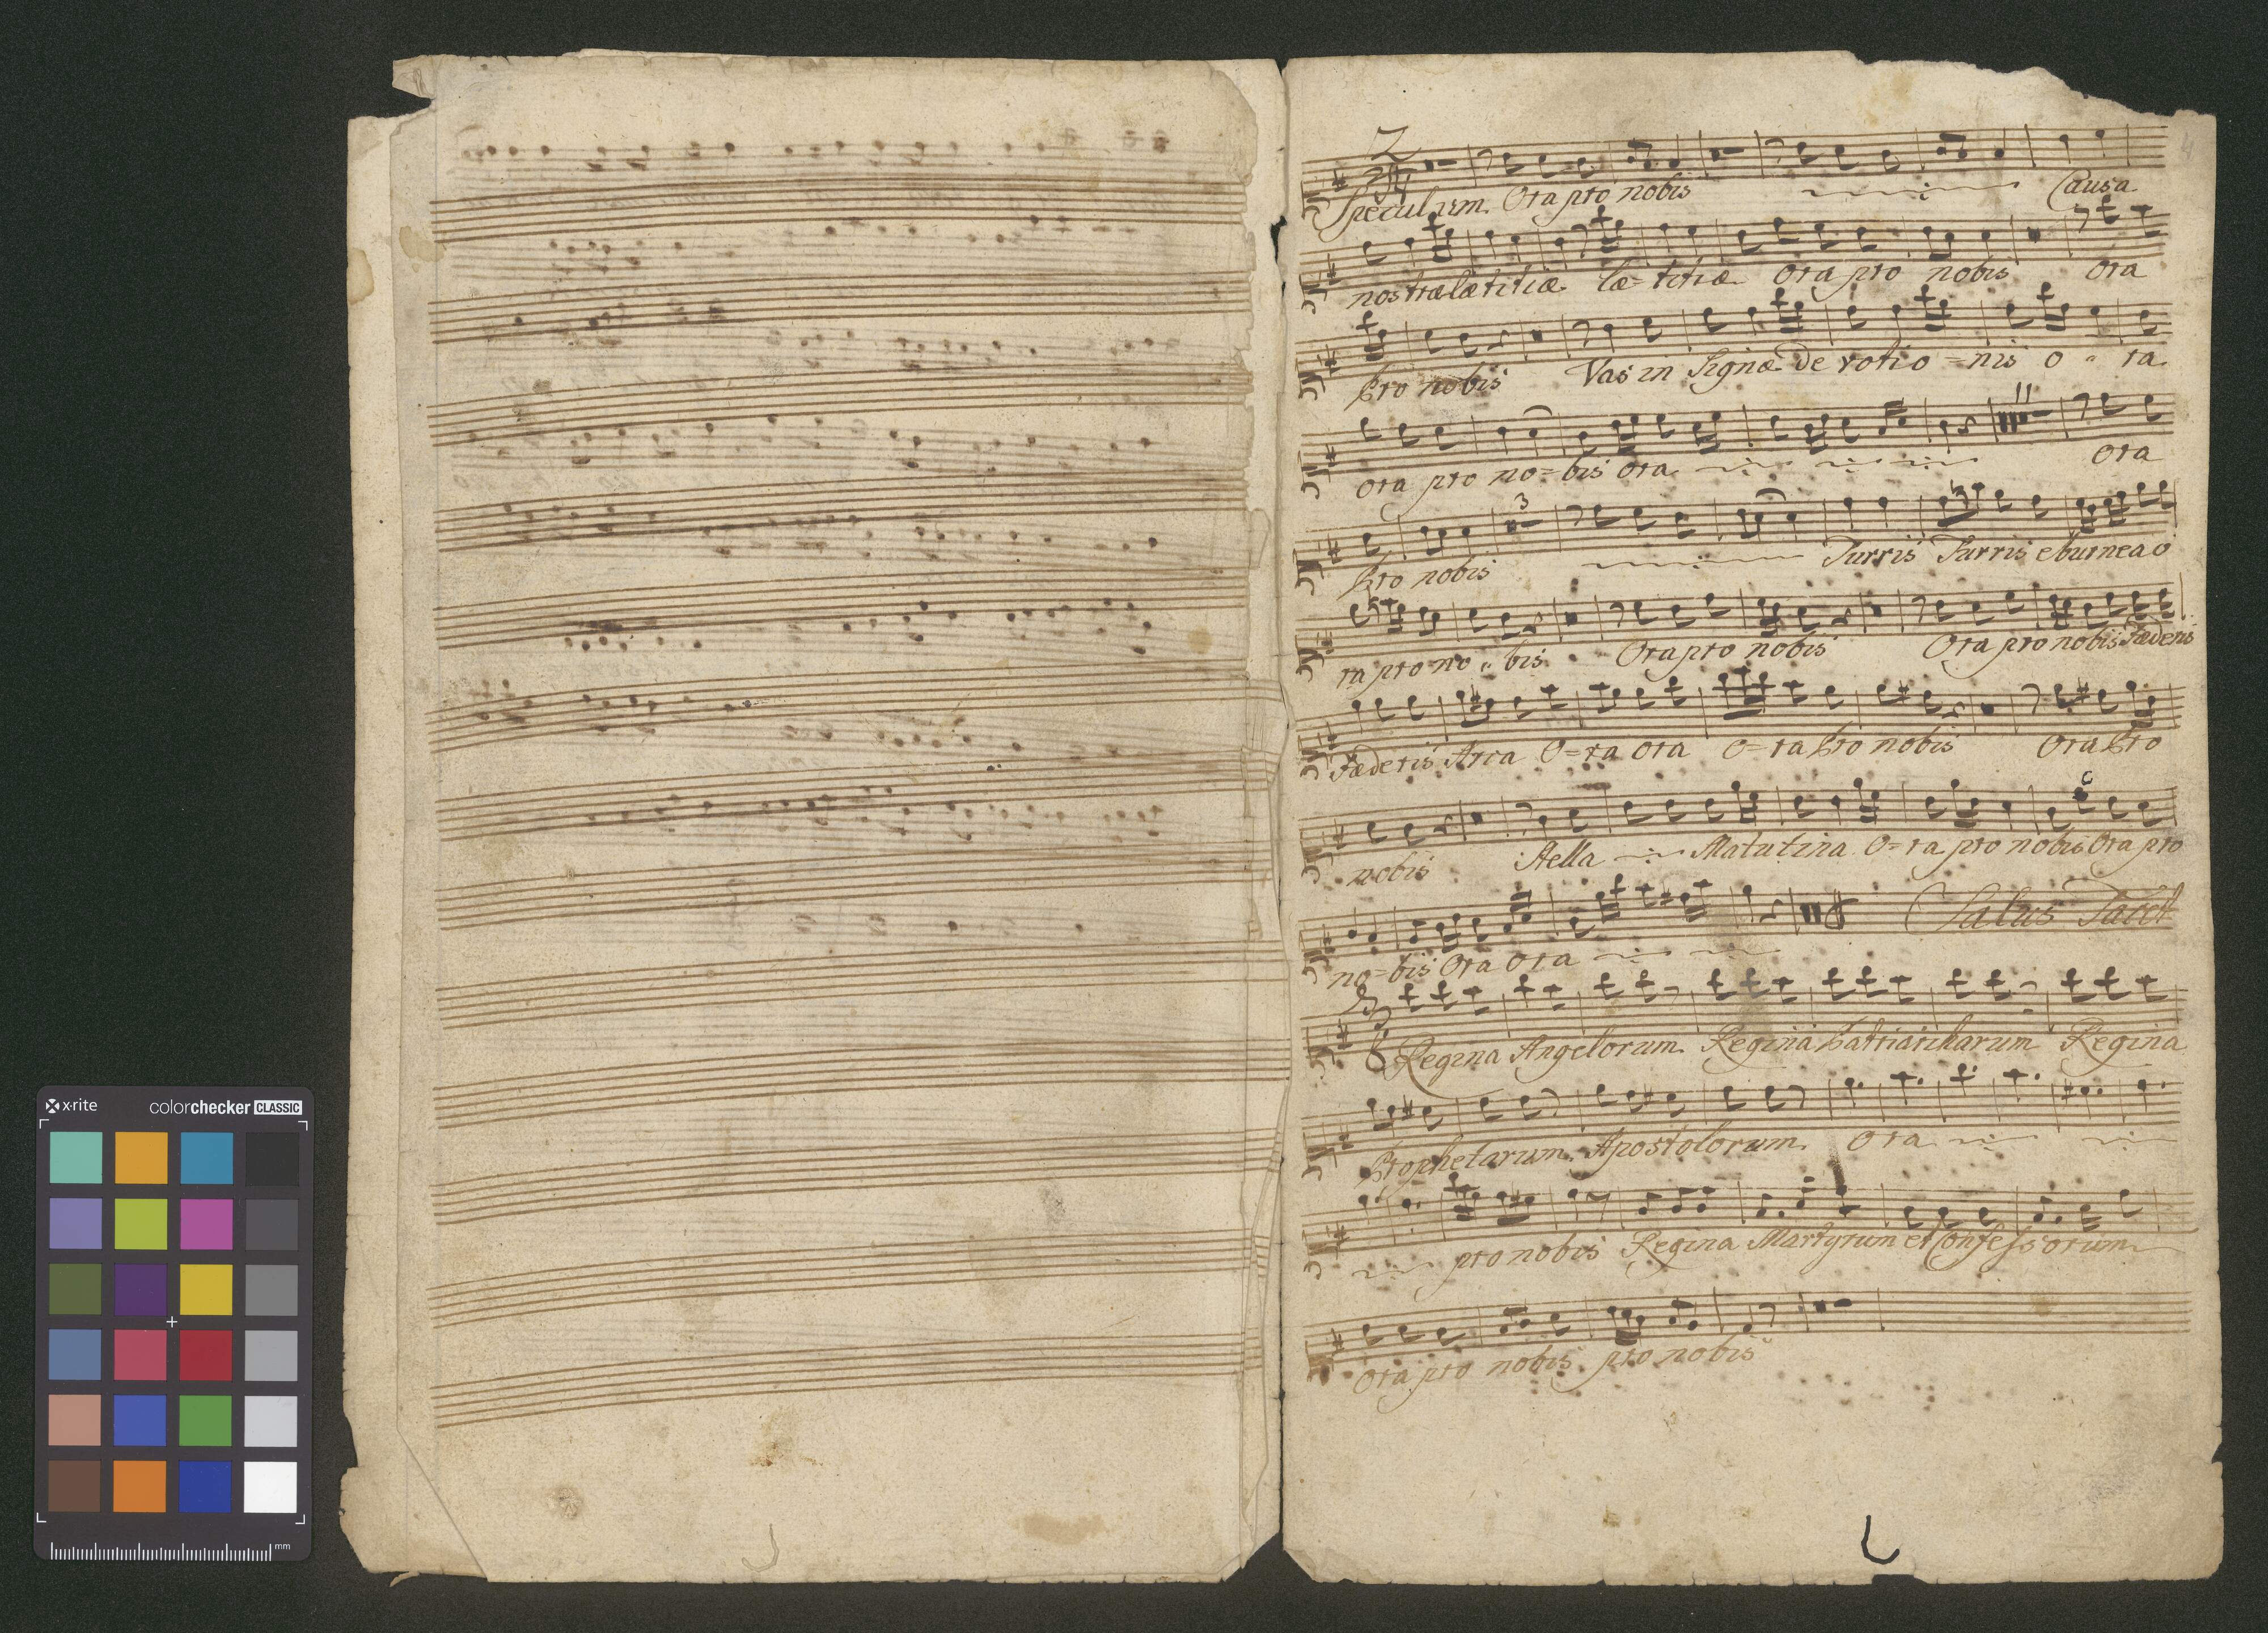 x-rite colorchecker CLASSIC
mm
2
4
Speculum Ora pro nobis Causa
nostræ lætitiæ læ=titiæ ora pro nobis ora
pro nobis Vas in Signæ devotio=nis o-ra
11
ora pro no=bis ora ora
3
pro nobis Turris Turris eburnea o
ra pro no=bis Ora pro nobis Ora pro nobis Fæderis
Fæderis Arca O=ra ora o=ra pro nobis Ora pro
nobis Stella Matutina O=ra pro nobis Ora pro
Salus Tacet
no=bis Ora ora
3
8
Regina Angelorum Regina Patriarcharum Regina
Prophetarum Apostolorum Ora
pro nobis Regina Martyrum et Confessorum
ora pro nobis pro nobis